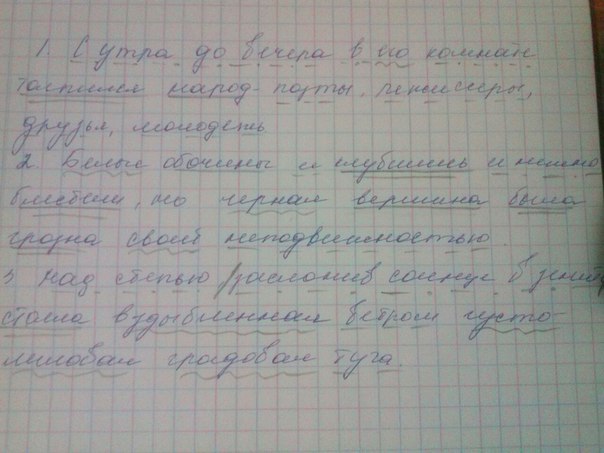 1. С утра до вечера в его комнате
толпился народ - поэты, режиссеры,
друзья, молодежь
2. Белые обочины и клубились и нежно
блистали, но черная вершина была
грозна своей неподвижностью.
3. Над степью, заслонив солнце в зените,
стояла вздыбленная ветром густо-
лиловая градовая туча.